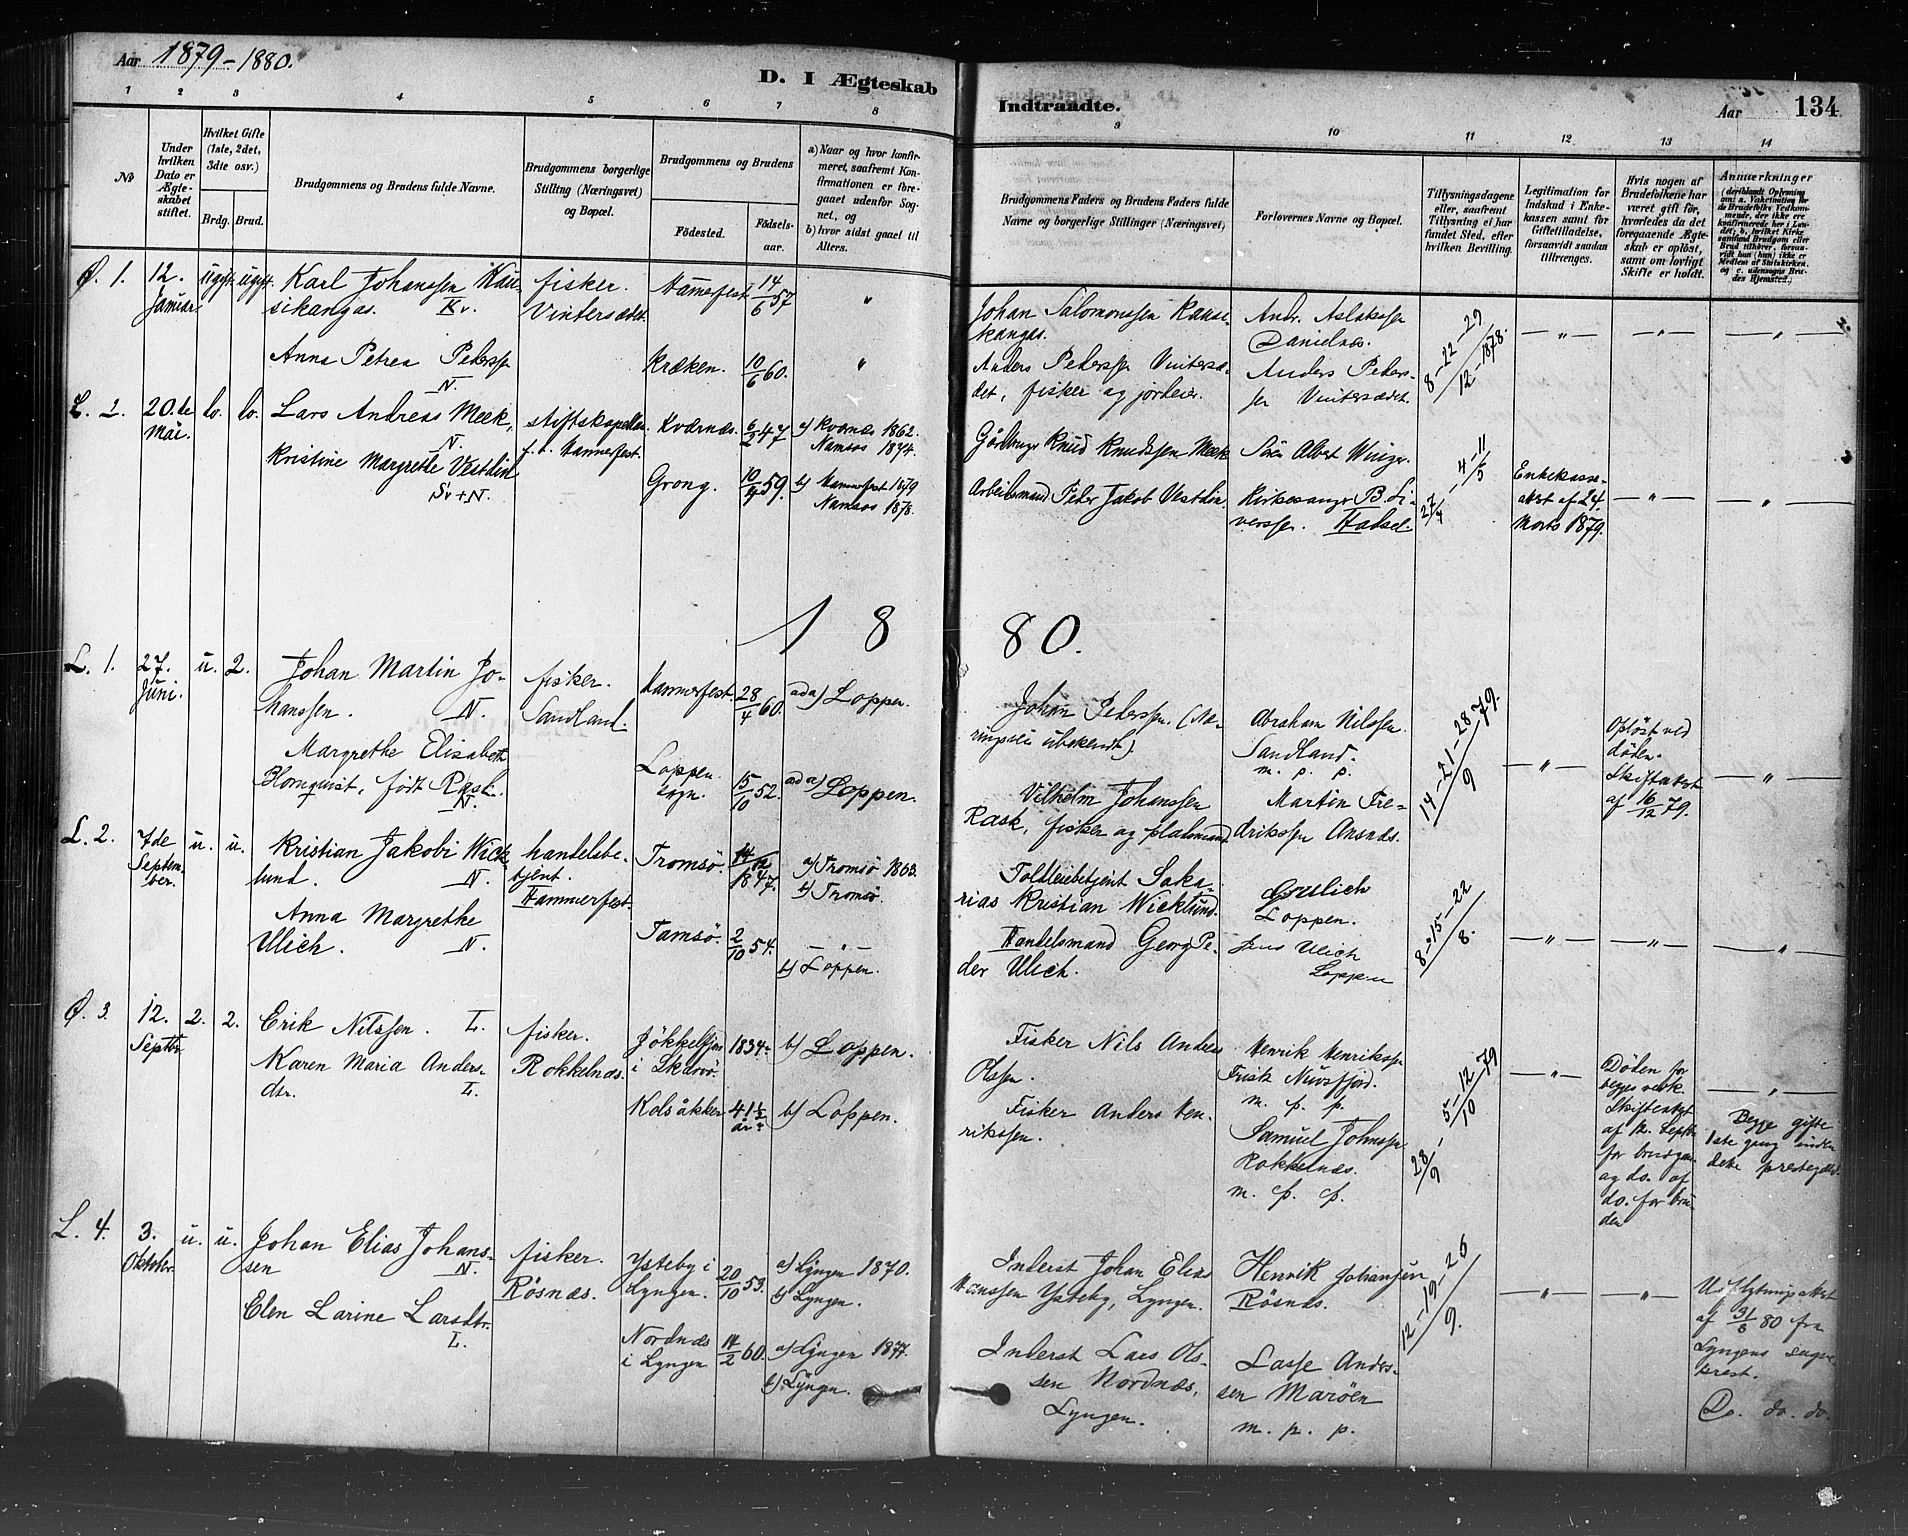 Aar 1879-1880.
D. I Ægteskab
1 2 3 4 5 6 7 8
No
Under hvilken Dato er Ægteskabet stiftet.
Hvilket Gifte (1ste, 2det, 3die osv.)
Brdg. Brud.
Brudgommens og Brudens fulde Navne.
Brudgommens borgerlige Stilling (Næringsvei) og Bopæl.
Brudgommens og Brudens
Födested. Födselsaar.
a) Naar og hvor konfirmeret, saafremt Konfirmationen er foregaaet udenfor Sognet, og
b) hvor sidst gaaet til Alters.
Ø. 1. 12. Januar ugift. ugift. Karl Johanssen Kausikangas. Kv. fisker. Vintersædet. Hammerfest 14/6 57 "
Anna Petrea Pederss N. Kræken. 10/6 60. "
L. 2. 20.de Mai. do. do. Lars Andreas Meek, N. stiftskapellan f. t. Hammerfest. Kværnæs. 6/2 47 a) Kværnæs 1862. Namsos 1874.
Kristine Margrethe Vestdin Sv + N. Grong. 10/4 59. b) Hammerfest 1879 Namsos 1878.
18
L. 1. 27. Juni. u. 2. Johan Martin Johanssen. N. fisker. Sandland. Hammerfest. 28/4 60. ad a) Loppen.
Margrethe Elisabeth Blomquist, født Rask. N. Loppen sogn. 15/10 52. ad a) Loppen.
L. 2. 7de September. u. u. Kristian Jakobi Wicklund. N. handelsbetjent. Hammerfest. Tromsö. 14/12 1847. a) Tromsö 1863. b) Tromsö.
Anna Margrethe Ulich. N. Tamsö. 2/10 54. — " — b) Loppen.
Ø. 3. 12. Septbr 2. 2. Erik Nilssen. L. fisker. Rokkelnæs. Jökkelfjord i Skærvö. 1834. b) Loppen.
Karen Maria Andersdtr. L. Kolsåkker 41 ½ år b) Loppen.
L. 4. 3. Oktober. u. u. Johan Elias Johanssen N. fisker. Rösnæs. Ysteby i Lyngen. 20/10 53. a) Lyngen 1870. b) Lyngen.
Elen Larine Larsdtr. L. Nordnæs i Lyngen 14/2 60. a) Lyngen 1877. b) Lyngen.
Indtraadte.
Aar 134
9 10 11 12 13 14
Brudgommens Faders og Brudens Faders fulde Navne og borgerlige Stillinger (Næringsvei)
Forlovernes Navne og Bopæl.
Tillysningsdagene eller, saafremt Tillysning ei har fundet Sted, efter hvilken Bevilling.
Legitimation for Indskud i Enkekassen samt for Giftetilladelse, forsaavidt saadan tiltrænges.
Hvis nogen af Brudefolkene har været gift för, hvorledes da det foregaaende Ægteskab er oplöst, samt om lovligt Skifte er holdt.
Anmærkninger
(deriblandt Oplysning om: a. Vakcination for de Brudefolks Vedkommende, der ikke ere konfirmerede her i Landet; b. hvilket Kirkesamfund Brudgom eller Brud tilhører, forsaavidt han (hun) ikke er Medlem af Statskirken, og c. udensogns Brudes Hjemsted.)
Johan Salomonssen Kausikangas. Andr. Aslakssen Danielnæs. 8-22-29/12-1878. — " — — " — — " —
Anders Pederssen Vintersædet, fisker og jordeier. Anders Pederssen Vintersædet.
Gårdbruger Knud Knudssen Meek Sören Albert Winger. 27/4 - 4-11/5
Arbeidsmand Peder Jakob Vestdin. Kirkesanger B. Siverssen. Hasvel. Enkekasseattest af 24. Marts 1879. — " — — " —
80.
Johan Pederssen. (Næringsvei ubekendt) Abraham Nilssen. Sandland. m. p. p. 14-21-28/9 79. — " — Oplöst ved döden. Skifteattest af 16/12 79. — " —
Vilhelm Johanssen Rask, fisker og pladsmand Martin Fredrikssen Arsnæs.
Toldbetjent Sakarias Kristian Wicklund. GPUlich Loppen. 8-15-22/8. — " — — " — "
Handelsmand Georg Peder Ulich. Jens Ulich Loppen
Fisker Nils Anders Olssen. Henrik Henrikssen Frisk Nuvsfjord. m. p. p. 28/9 - 5-12/10 79 — " — Döden for begges vedk. Skifteattest af 12. Septb for brudgom og do. af do. for bruden — " —
Fisker Anders Henrikssen. Samuel Johnssen Rokkelnæs. m. p. p. Begge gifte 1ste gang inden dette prestegjæld.
Inderst Johan Elias Hanssen Ysteby, Lyngen. Henrik Johansen Rösnæs. 12-19-26/9. — " — — " — Udflytningsattest af 31/8 80 fra Lyngens sogneprest.
Inderst Lars Olssen Nordnæs, Lyngen. Lasse Anderssen Maröen m. p. p. Do. do. do.